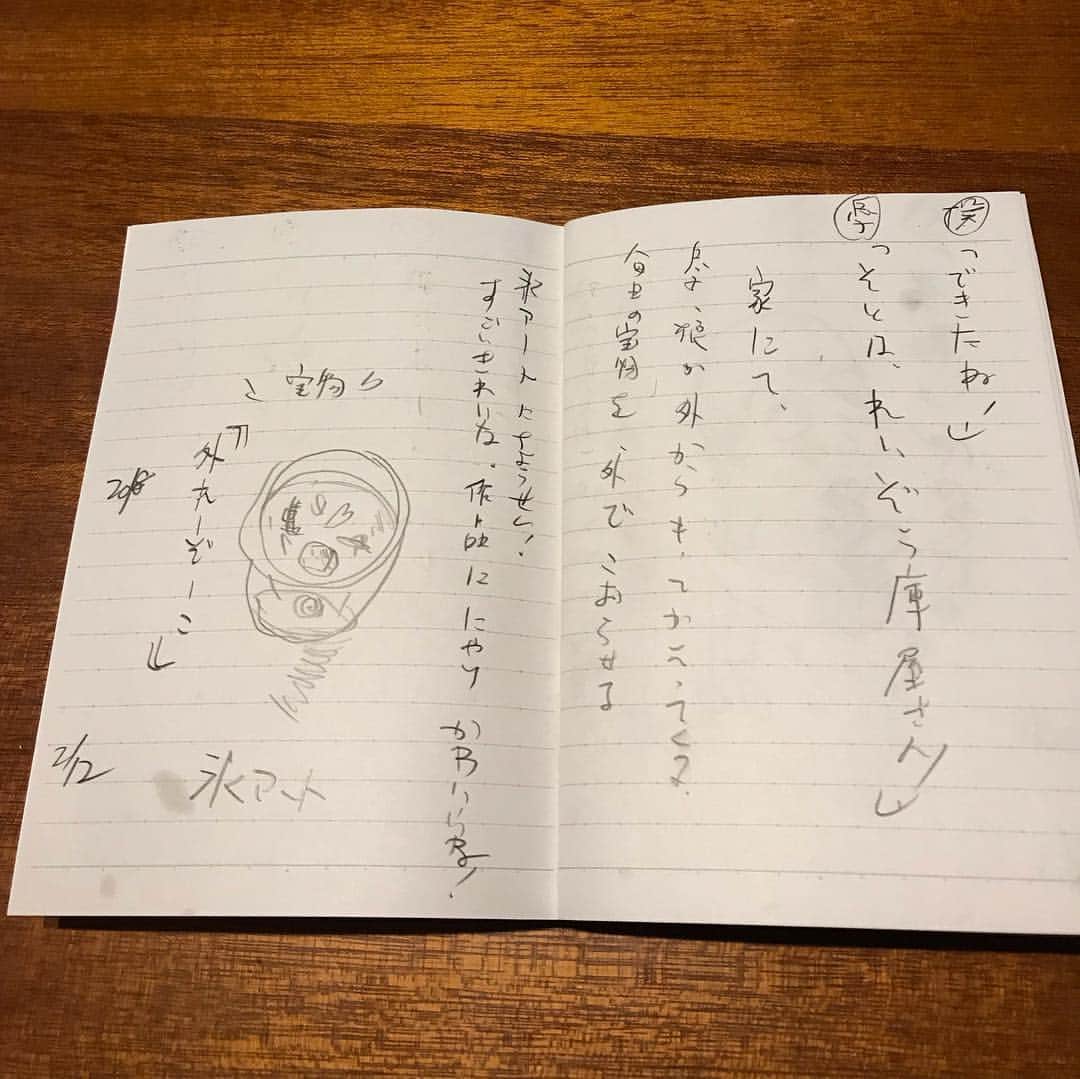 僕「できたね！」
息子「そとは、れいぞう庫屋さん」
家にて、
息子、娘が外からもってかえってくる。
自丑の宝物を外でこおらせる
氷アートにちょうせん！
すごいきれいな。作品ににやり
かわいいな！
宝物
『外れーぞーこ』
氷アート
2018
2/12